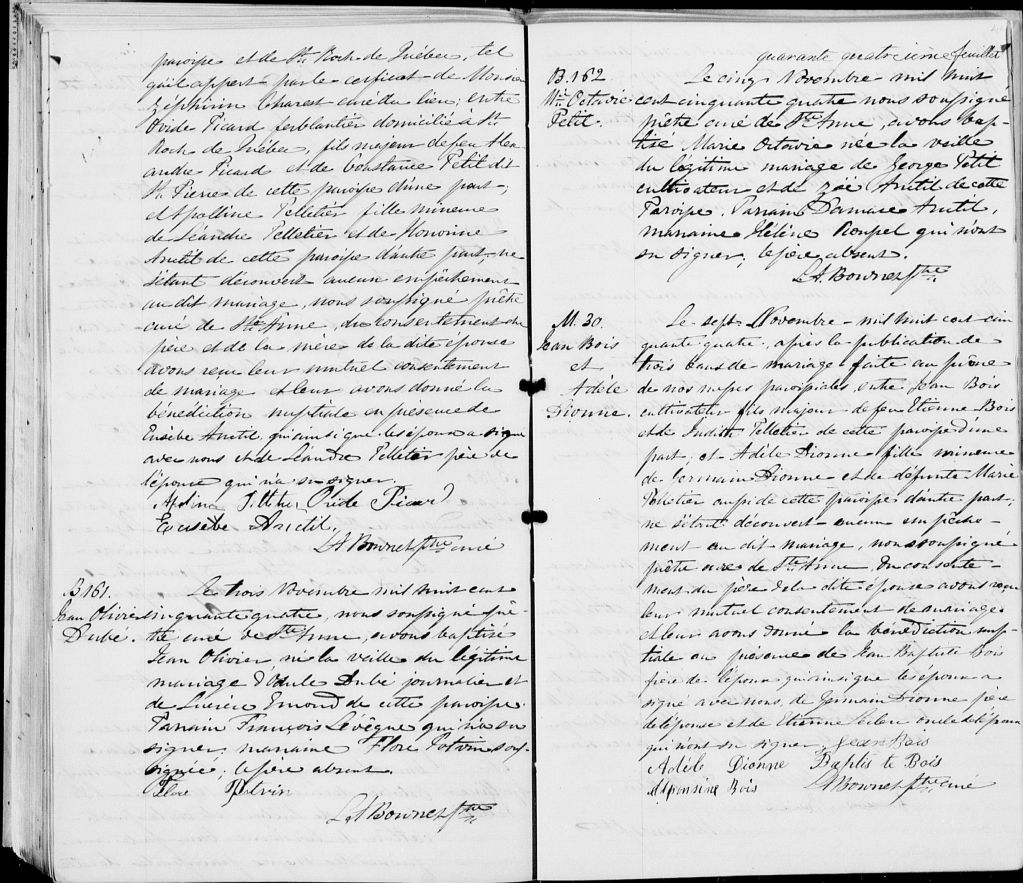 paroisse et de St. Roch de Québec, tel
qu'il appert par le certificat de Monsr
Zéphirin Charest curé du lieu; entre
Ovide Picard ferblantier domicilié à St.
Roch de Québec, fils majeur de feu Alex
andre Picard et de Constance Petit dit
St. Pierre de cette paroisse d'une part;
et Apolline Pelletier fille mineure
de Léandre Pelletier et de Honorine
Anctil de cette paroisse d'autre part, ne
s'étant découvert aucun empêchement
au dit mariage, nous soussigné prêtre
curé de Ste Anne, du consentement du
père et de la mère de la dite épouse
avons reçu leur mutuel consentement
de mariage et leur avons donné la
bénédiction nuptiale en présence de
Eusèbe Anctil, qui ainsi que les époux a signé
avec nous et de Léandre Pelletier père de
l'épouse qui n'a su signer.
Ovide Picard
Eusèbe Anctil.
ptre curé
B.161.
Jean Olivier
Dubé.
Le trois Novembre mil huit cent
cinquante quatre, nous soussigné prê-
tre curé de Ste Anne, avons baptisé
Jean Olivier, né la veille du légitime
mariage d' Dubé journalier et
de Emond de cette paroisse.
Parrain François Lévêque qui n'a su
signer, marraine Flore Potvin sous-
signée; le père absent.
Flore Potvin
ptre
quarante quatrieme feuillet
B.162
Mie Octavie
Petit.
Le cinq Novembre mil huit
cent cinquante quatre nous soussigné
prêtre curé de Ste Anne, avons bap-
tisé Marie Octavie née la veille
du légitime mariage de George Petit
cultivateur et de Zoé Anctil de cette
Paroisse. Parrain Damase Anctil,
marraine Hélène qui n'ont
su signer; le père absent.
ptre
M. 30.
Jean Bois
et
Adéle
Dionne.
Le sept Novembre mil huit cent cin
quante quatre, après la publication de
trois bans de mariage faite au prône
de nos messes paroissiales, entre Jean Bois
cultivateur fils majeur de feu Etienne Bois
et de Judith Pelletier de cette paroisse d'une
part; et Adèle Dionne fille mineure
de Germain Dionne et de défunte Marie
Pelletier aussi de cette paroisse d'autre part;
ne s'étant découvert aucun empêche-
ment au dit mariage, nous soussigné
prêtre curé de Ste Anne, du consente-
ment du père de la dite épouse avons reçu
leur mutuel consentement de mariage
et leur avons donné la bénédiction nup-
tiale en présence de Jean Baptiste Bois
frère de l'époux qui ainsi que les époux a
signé avec nous, de Germain Dionne père
de l'épouse et de Etienne oncle de l'époux
qui n'ont su signer. Jean Bois
Adéle Dionne Baptis te Bois
Alphonsine Bois ptre curé